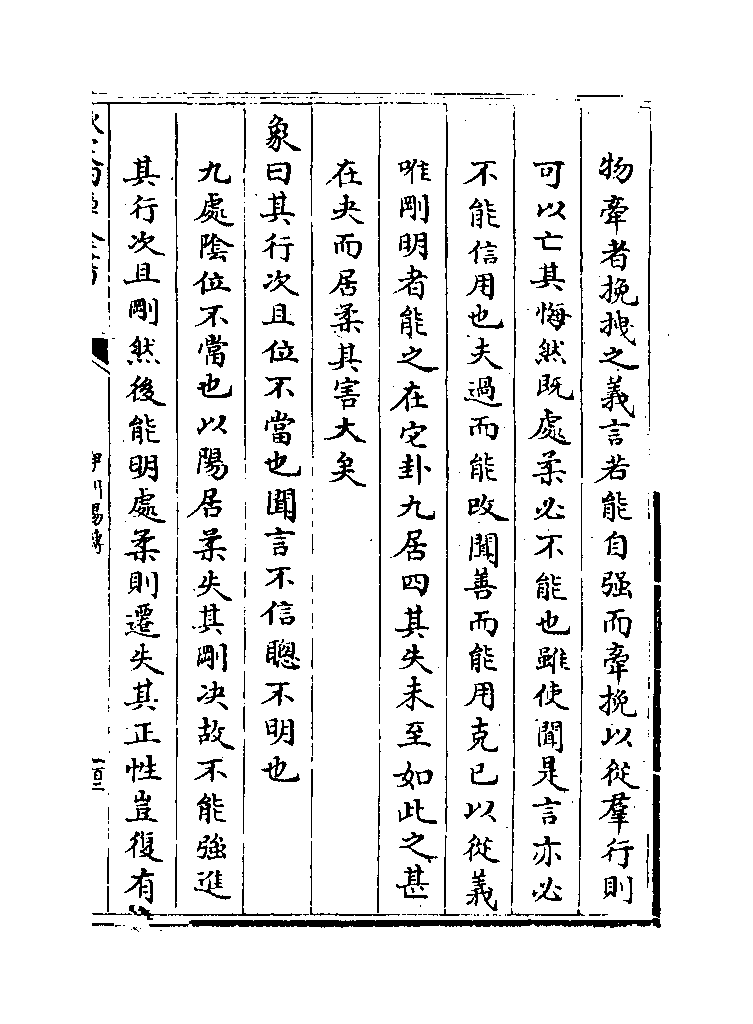 物牽者挽拽之義言若能自强而牽挽以從羣行則
可以亡其悔然既處柔必不能也雖使聞是言亦必
不能信用也夫過而能改聞善而能用克已以從義
唯剛明者能之在它卦九居四其失未至如此之甚
在夬而居柔其害大矣
象曰其行次且位不當也聞言不信聰不明也
九處陰位不當也以陽居柔失其剛决故不能強進
其行次且剛然後能明處柔則遷失其正性豈復有
伊川易傳
一百二